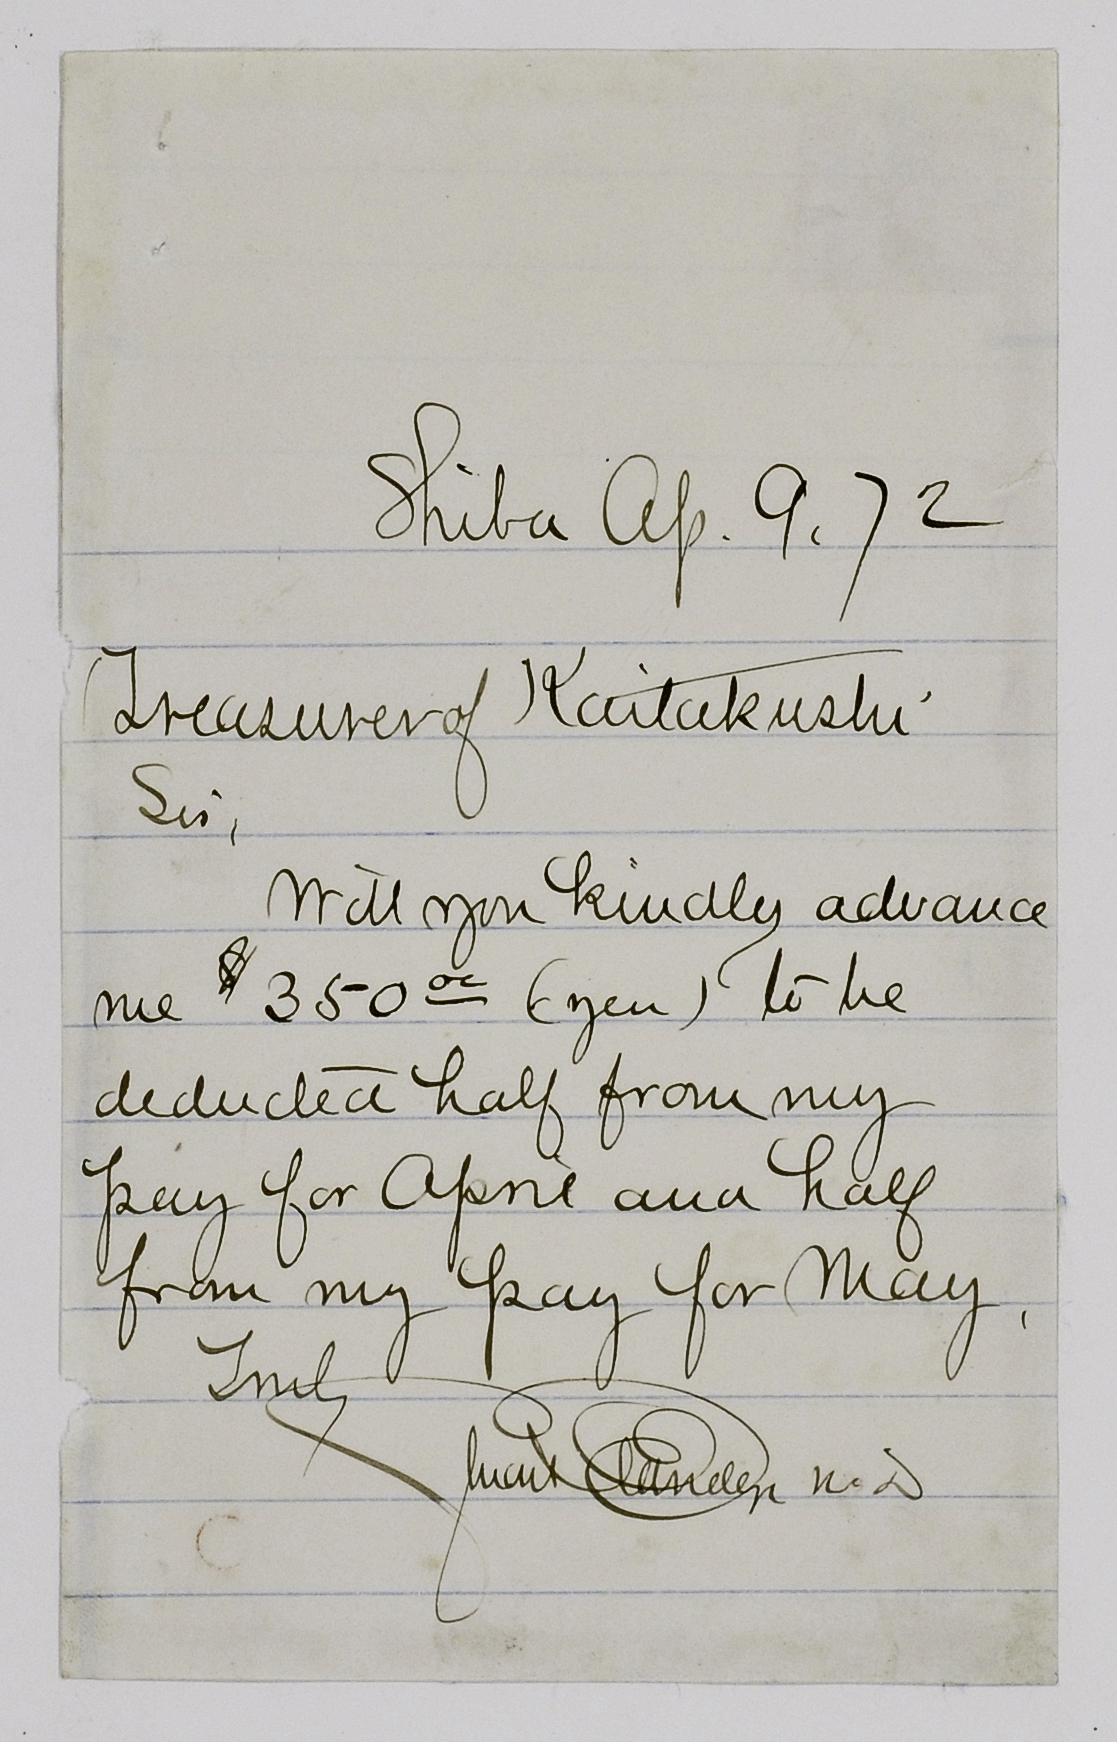 Shiba Ap. 9. 72
Treasurer of Kaitakushi
Sir,
Will you kindly advance
me $350 00 (yen) to be
deducted half from my
pay for April and half
from my pay for May.
Truly
Stuart Eldridge M.D